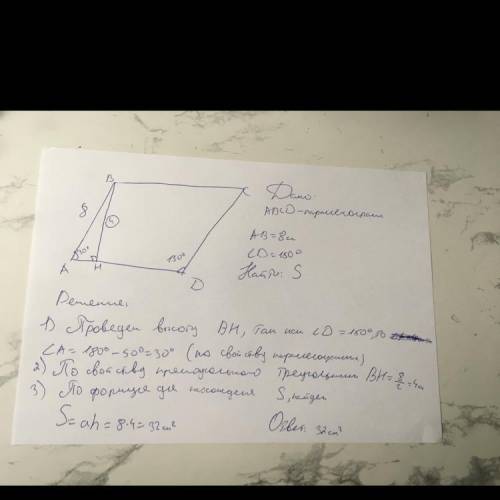 B
C
Дано:
ABCD-параллелограм
8
4
AB=8см
30°
150°
∠D=150°
A
H
D
Найти: S
Решение:
1) Проведем высоту BH, так как ∠D=150°, то
∠A=180°-50°=30° (по свойству параллелограмма)
2) По свойству прямоугольного треугольника BH=8/2=4см
3) По формуле для нахождения S, найдем
S=ah=8·4=32см²
Ответ: 32см²